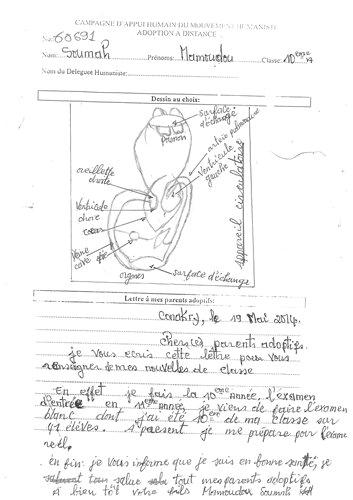 CAMPAGNE D'APPUI HUMAIN DU MOUVEMENT HUMANISTE
ADOPTION A DISTANCE
No: 60691
Nom: Soumah Prénoms: Mamoudou Classe: 10ème A
Nom du Delegué Humaniste:
Dessin au choix:
surface d'échange
Poumon
artère pulmonaire
Ventricule gauche
oreillette droite
Ventricule droite
cœur
Veine cave
orgnes
surface d'échange
appareil circulatoire
Lettre à mes parents adoptifs:
Conakry, le 19 Mai 2014.
chers les parents adoptifs.
je vous ecris cette lettre pour vous
renseigner de mes nouvelles de classe
En effet je fais la 10ème Année, l'examen
d'entrée en 11ème Année, je viens de faire l'examen
blanc dont j'ai été 10è de ma classe sur
41 élèves. A present je me prépare pour l'examen
reel.
en fin je vous informe que je suis en bonne santé, je
salue tout mes parents adoptifs
a bien tôt votre Mamoudou Soumah